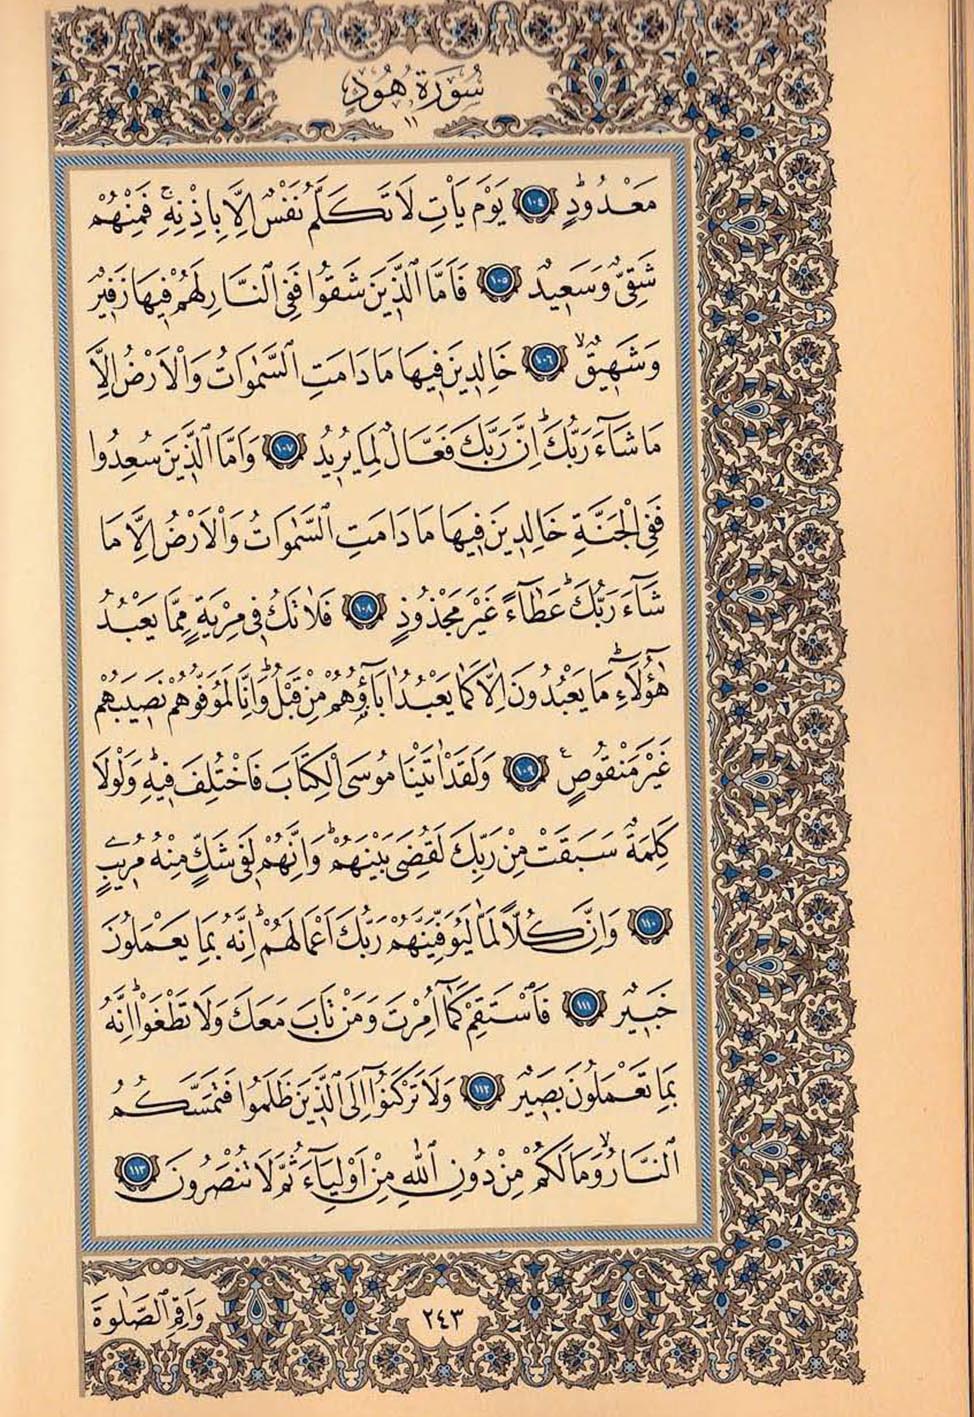 سُورَةُ هُودٍ
١١
مَعْدُودٍۜ ١٠٤ يَوْمَ يَأْتِ لَا تَكَلَّمُ نَفْسٌ اِلَّا بِاِذْنِهِۚ فَمِنْهُمْ
شَقِىٌّ وَسَعِيدٌ ١٠٥ فَاَمَّا الَّذِينَ شَقُوا فَفِى النَّارِ لَهُمْ فِيهَا زَفِيرٌ
وَشَهِيقٌۙ ١٠٦ خَالِدِينَ فِيهَا مَا دَامَتِ السَّمٰوَاتُ وَالْاَرْضُ اِلَّا
مَا شَٓاءَ رَبُّكَۜ اِنَّ رَبَّكَ فَعَّالٌ لِمَا يُرِيدُ ١٠٧ وَاَمَّا الَّذِينَ سُعِدُوا
فَفِى الْجَنَّةِ خَالِدِينَ فِيهَا مَا دَامَتِ السَّمٰوَاتُ وَالْاَرْضُ اِلَّا مَا
شَٓاءَ رَبُّكَۜ عَطَٓاءً غَيْرَ مَجْذُوذٍ ١٠٨ فَلَا تَكُ فِى مِرْيَةٍ مِمَّا يَعْبُدُ
هٰٓؤُ۬لَٓاءِۜ مَا يَعْبُدُونَ اِلَّا كَمَا يَعْبُدُ اٰبَٓاؤُ۬هُمْ مِنْ قَبْلُۜ وَاِنَّا لَمُوَفُّوهُمْ نَصِيبَهُمْ
غَيْرَ مَنْقُوصٍ۟ ١٠٩ وَلَقَدْ اٰتَيْنَا مُوسَى الْكِتَابَ فَاخْتُلِفَ فِيهِۜ وَلَوْلَا
كَلِمَةٌ سَبَقَتْ مِنْ رَبِّكَ لَقُضِىَ بَيْنَهُمْۜ وَاِنَّهُمْ لَفِى شَكٍّ مِنْهُ مُرِيبٍ
١١٠ وَاِنَّ كُلًّا لَمَّا لَيُوَفِّيَنَّهُمْ رَبُّكَ اَعْمَالَهُمْۜ اِنَّهُ بِمَا يَعْمَلُونَ
خَبِيرٌ ١١١ فَاسْتَقِمْ كَمَٓا اُمِرْتَ وَمَنْ تَابَ مَعَكَ وَلَا تَطْغَوْاۜ اِنَّهُ
بِمَا تَعْمَلُونَ بَصِيرٌ ١١٢ وَلَا تَرْكَنُٓوا اِلَى الَّذِينَ ظَلَمُوا فَتَمَسَّكُمُ
النَّارُۙ وَمَا لَكُمْ مِنْ دُونِ اللّٰهِ مِنْ اَوْلِيَٓاءَ ثُمَّ لَا تُنْصَرُونَ ١١٣
٢٤٣
وَاَقِمِ الصَّلٰوةَ